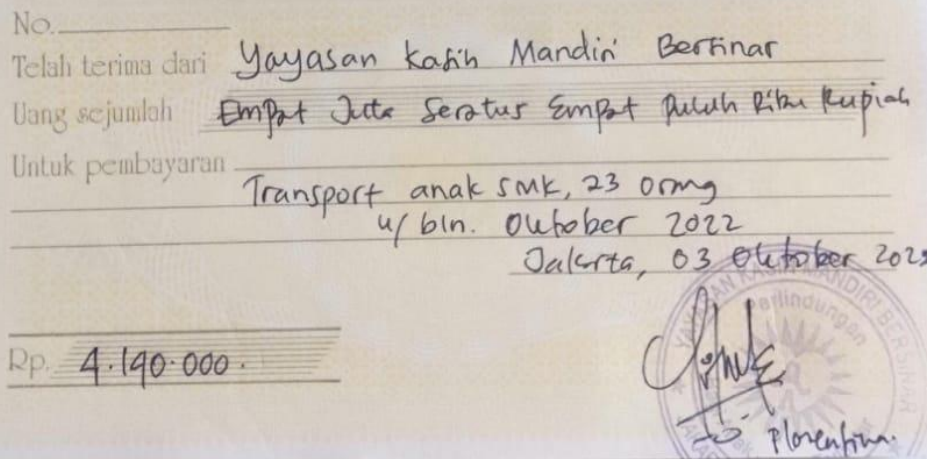 No.
Telah terima dari Yayasan Kasih Mandiri Bersinar
Uang sejumlah Empat Juta Seratus Empat Puluh Ribu Rupiah
Untuk pembayaran
Transport anak SMK, 23 orang
u/ bln. Oktober 2022
Jakarta, 03 Oktober 202
YAYASAN KASIH MANDIRI BERSINAR
Perlindungan
Rp. 4.140.000.
Florentina.